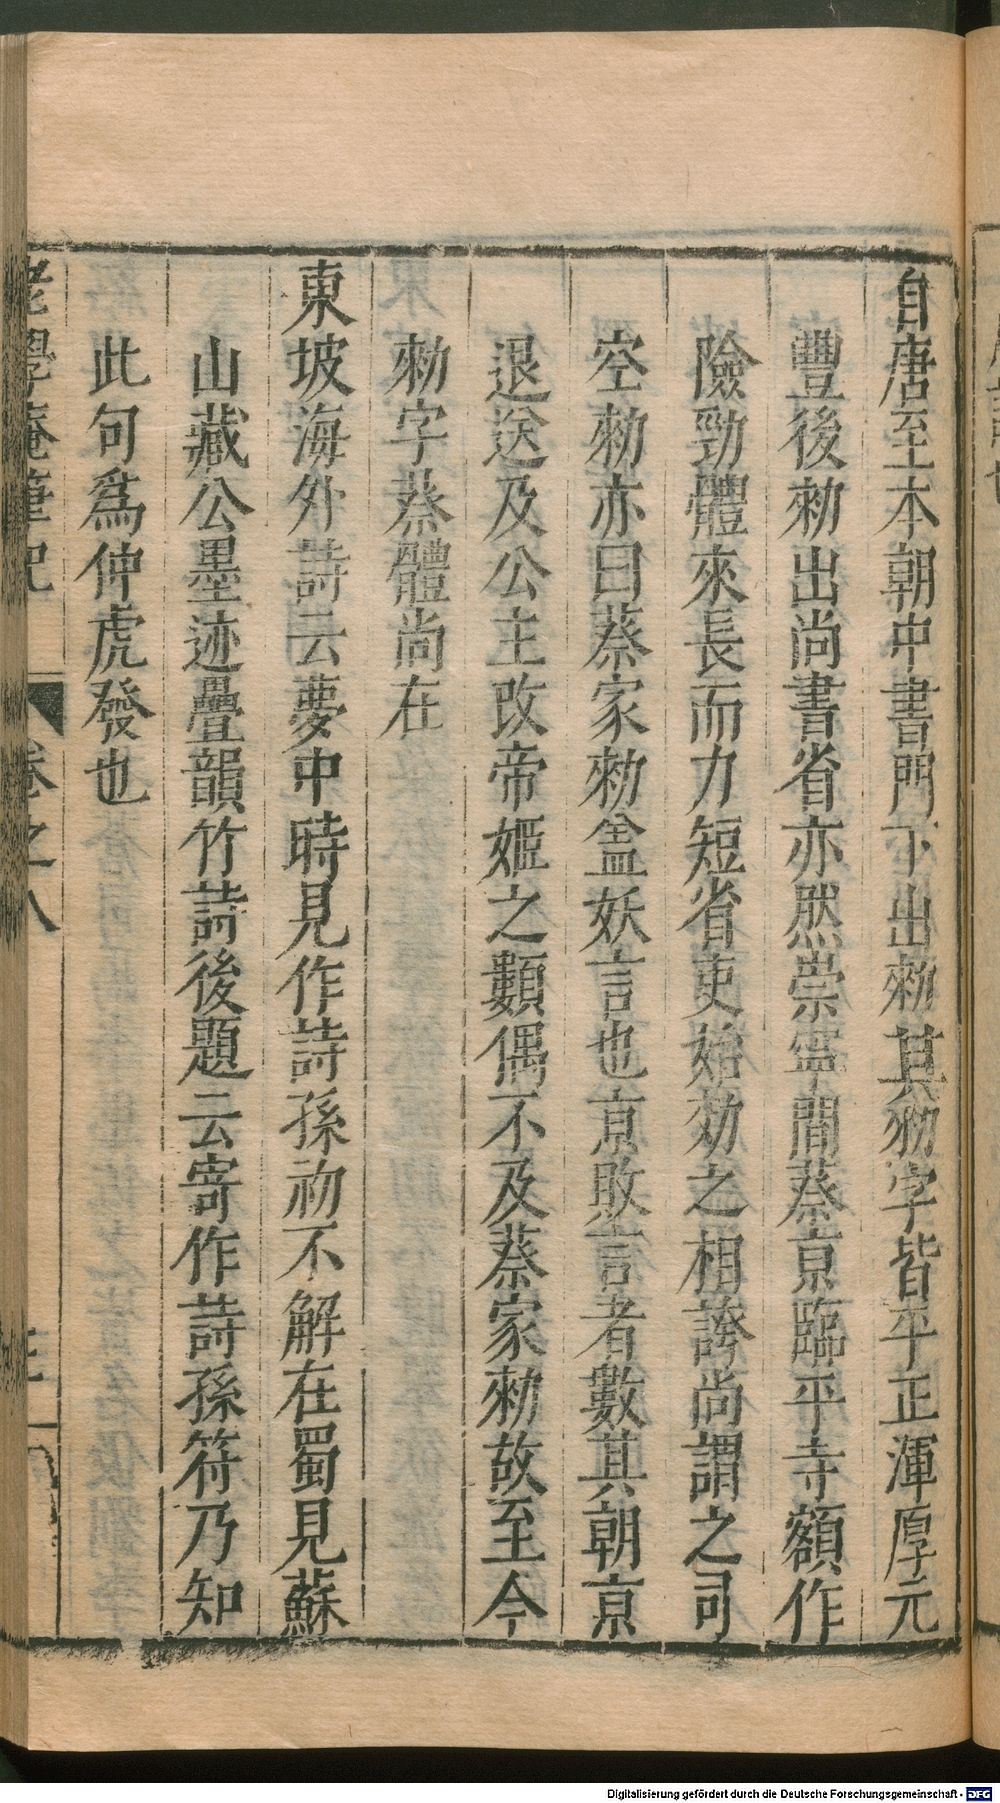 自唐至本朝中書門下出勑其勑字皆平正渾厚元
豐後勑出尚書省亦然崇寧間蔡京臨平寺額作
險勁體來長而力短省吏始効之相誇尚謂之司
空勑亦曰蔡家勑盖妖言也京敗言者數其朝京
退送及公主改帝姬之類偶不及蔡家勑故至今
勑字蔡體尚在
東坡海外詩云夢中時見作詩孫初不解在蜀見蘇
山藏公墨迹疊韻竹詩後題云寄作詩孫符乃知
此句爲仲虎發也
老學庵筆記 卷之八
Digitalisierung gefördert durch die Deutsche Forschungsgemeinschaft - DFG